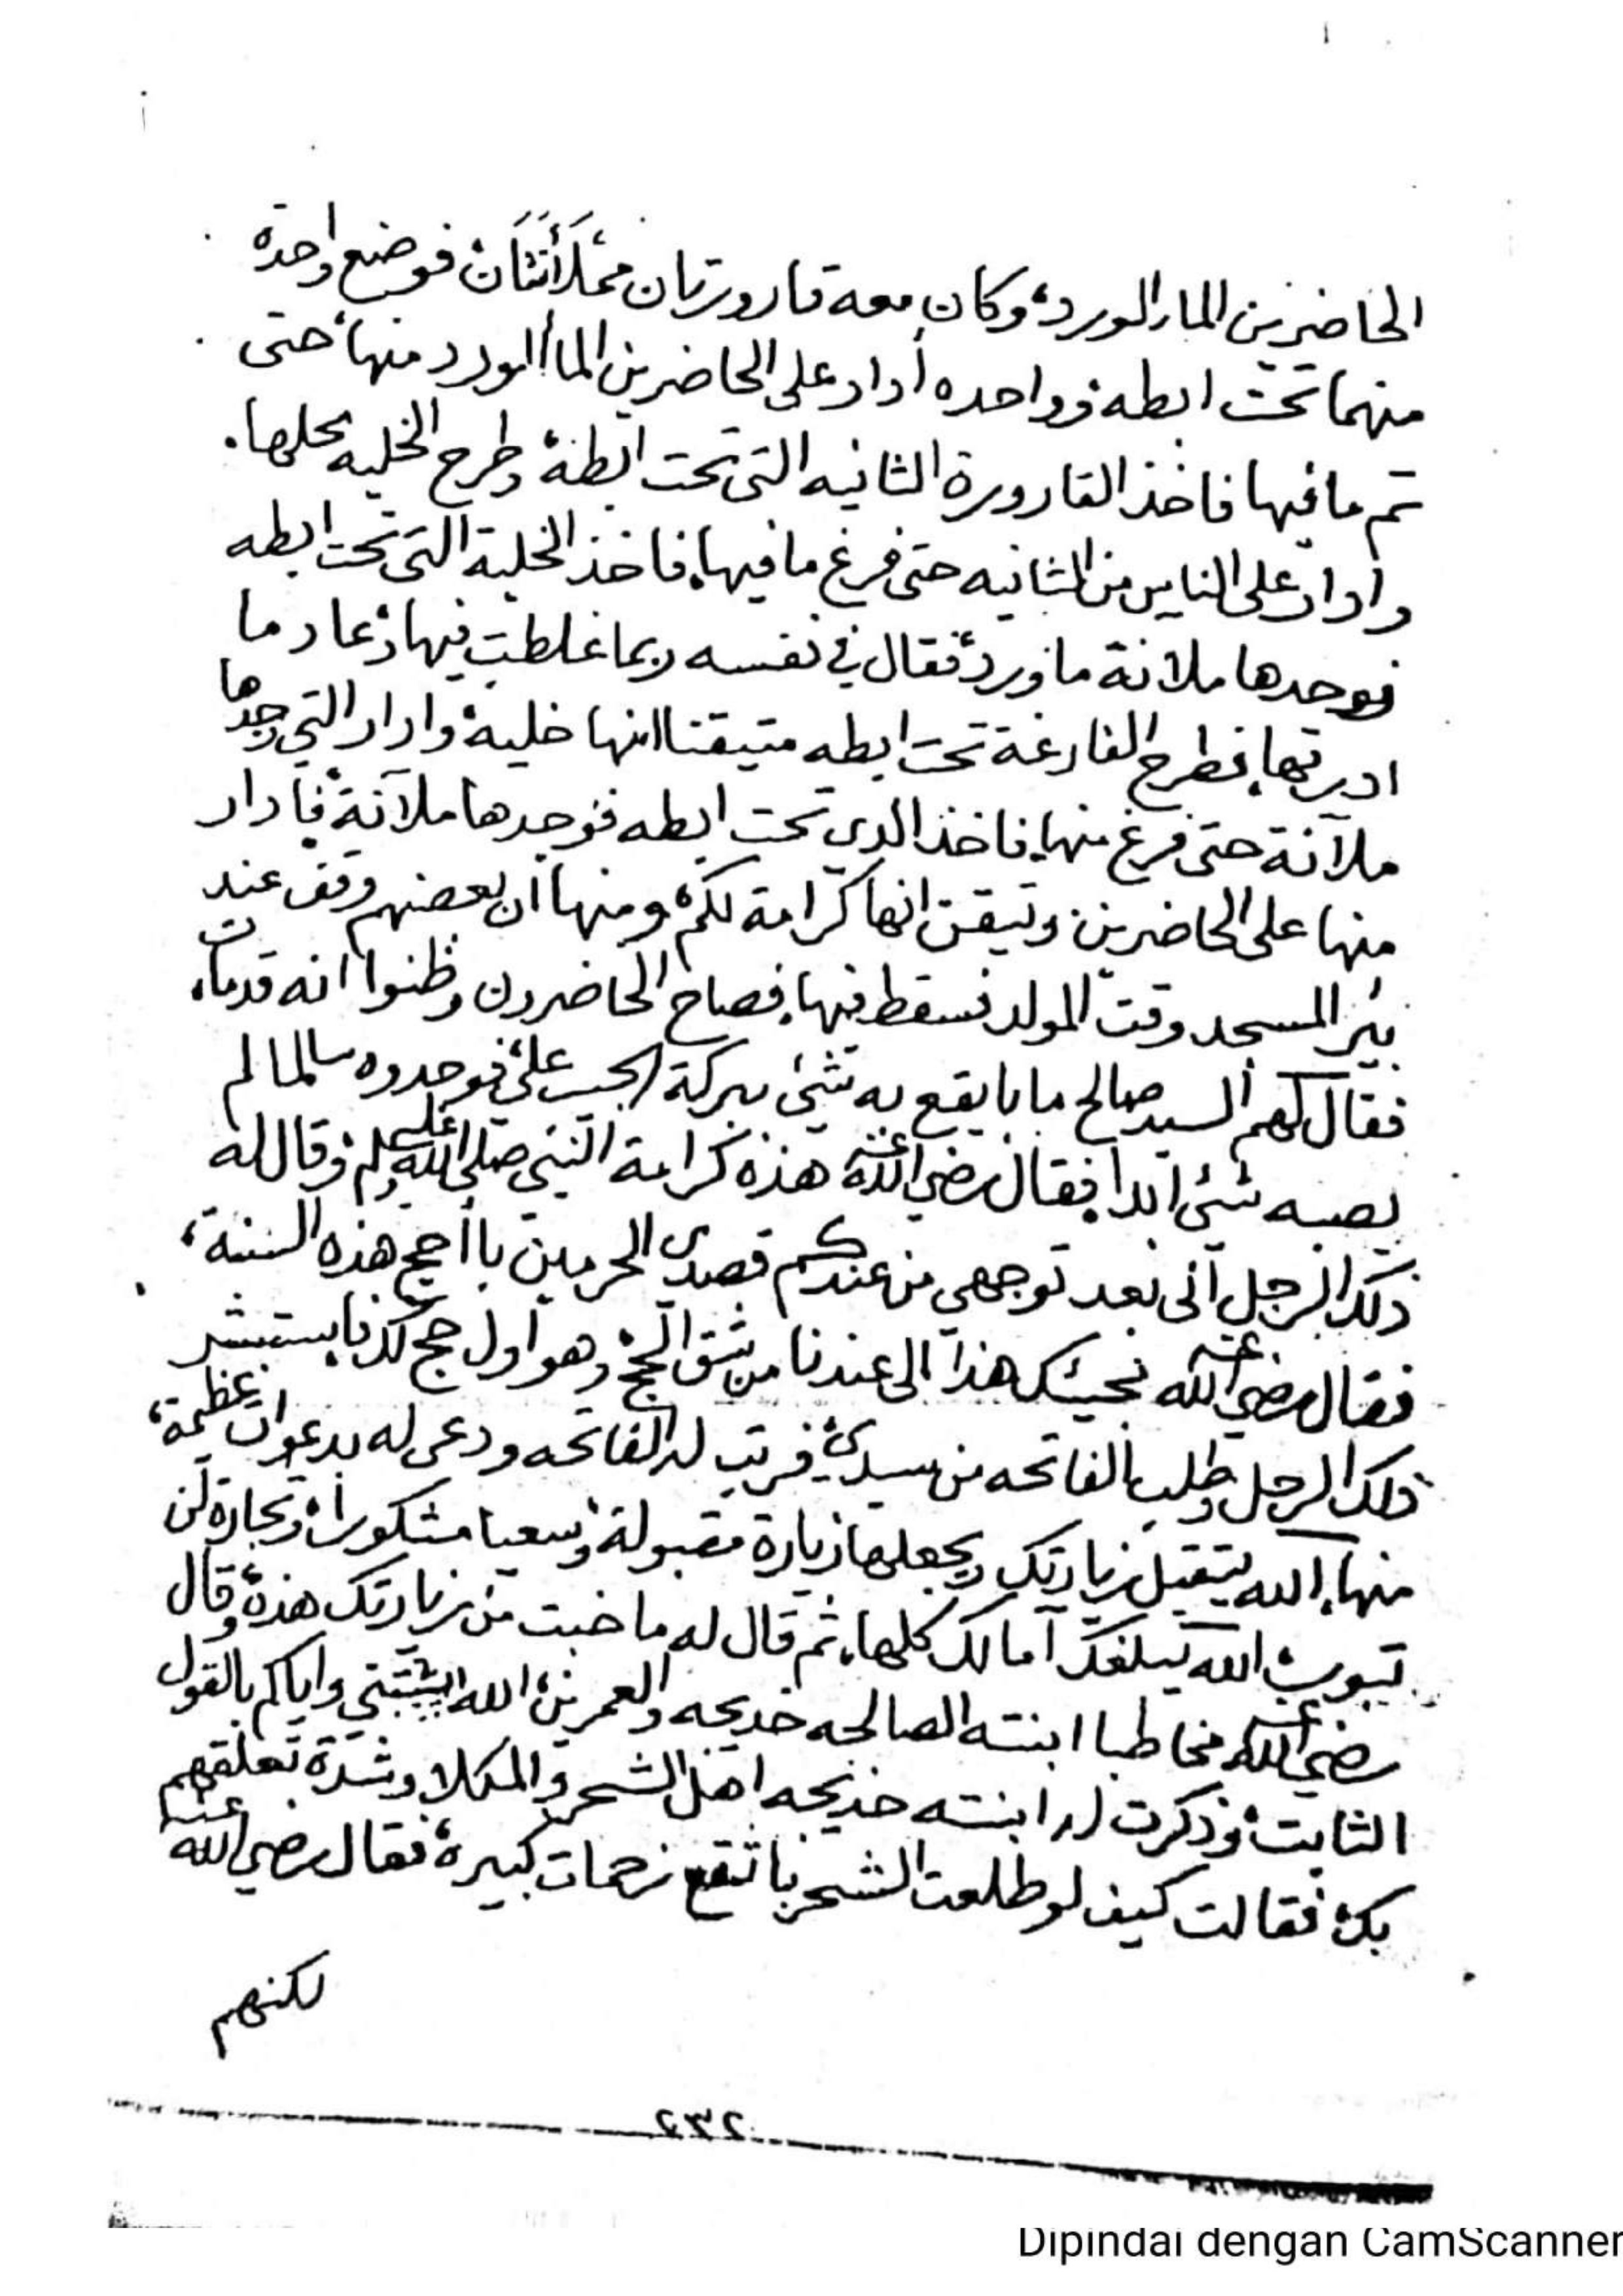 الحاضرين الماء الورد، وكان معه قارورتان ممْلَأَنَتَان، فوضع واحدة
منهما تحت ابطه، وواحده أدار على الحاضرين الماأ الورد منها، حتى
تم ما فيها، فاخذ القارورة الثانيه التي تحت ابطه، وطرح الخليه محلها.
وأدار على الناس من الثانيه حتى فرغ ما فيها، فاخذ الخلية التي تحت ابطه
فوجدها ملانة ماورد، فقال في نفسه ربما غلطت فيها، وعاد ما
ادرتها، فطرح الفارغة تحت ابطه متيقنا انها خلية، وادار التي وجدها
ملآنة حتى فرغ منها، فاخذ الذي تحت ابطه فوجدها ملآنة، فادار
منها على الحاضرين، وتيقن انها كرامة لكم، ومنها أن بعضهم وقف عند
بئر المسجد وقت المولد فسقط فيها، فصاح الحاضرون وظنوا انه قدمات،
فقال لهم السيد صالح ما بايقع به شيئ ببركة الحبيب علي، فوجدوه سالما لم
يصبه شئي ابدا، فقال رضي الله عنه هذه كرامة النبي صلى الله عليه وسلم، وقال له
ذلك الرجل آني بعد توجهي من عندكم قصدي الحرمين با أحج هذه السنة،
فقال رضي الله عنه مجيئك هذا الى عندنا من شق الحج، وهو أول حج لك، فاستبشر
ذلك الرجل وطلب الفاتحه من سيدي، فرتب له الفاتحه ودعى له بدعوات عظيمة،
منها، الله يتقبل زيارتك ويجعلها زيارة مقبولة، وسعيا مشكورا، وتجارة لن
تبور، الله يبلغك آمالك كلها، ثم قال له ما خبت من زيارتك هذه، وقال
رضي الله عنه مخاطبا ابنته الصالحه خديجه والعمرين، الله يثبتني واياكم بالقول
الثابت، وذكرت له ابنته خديجه اهل الشحر والمكلا وشدة تعلقهم
بك، فقالت كيف لو طلعت الشحر با تقع زحمات كبيرة، فقال رضي الله عنه
لكنهم
٢٣٢
Dipindai dengan CamScanner